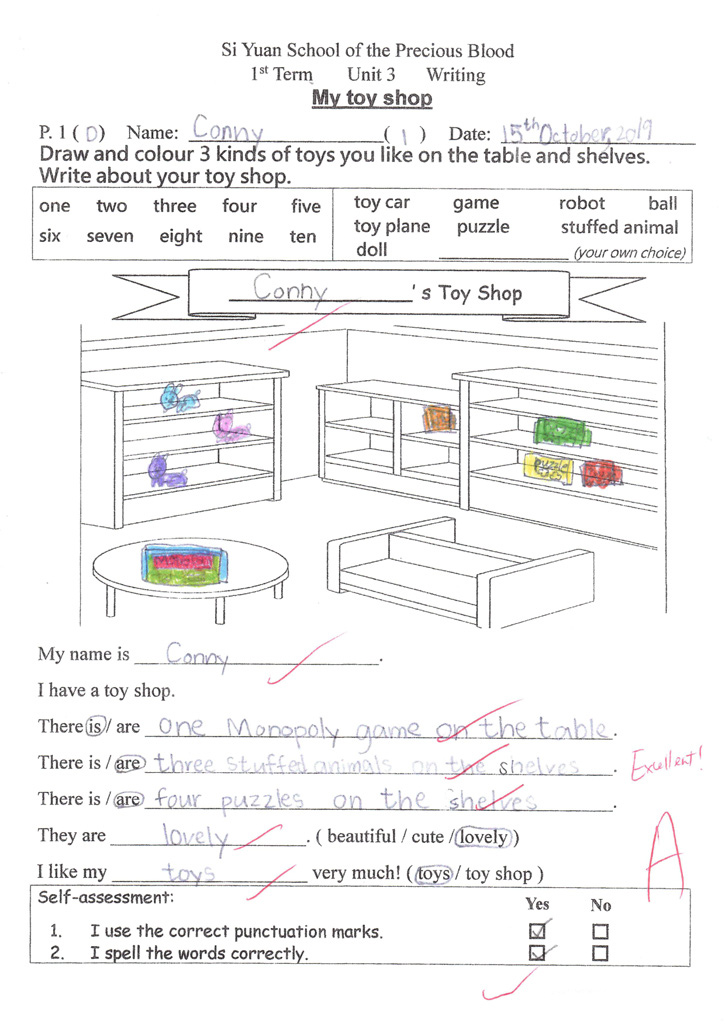 Si Yuan School of the Precious Blood
1st Term Unit 3 Writing
My toy shop
P. 1 ( D ) Name: Conny ( 1 ) Date: 15th October, 2019
Draw and colour 3 kinds of toys you like on the table and shelves.
Write about your toy shop.
one two three four five
six seven eight nine ten
toy car game robot ball
toy plane puzzle stuffed animal
doll (your own choice)
Conny 's Toy Shop
puzzle
My name is Conny .
I have a toy shop.
There is / are one Monopoly game on the table.
There is / are three stuffed animals on the shelves .
There is / are four puzzles on the shelves .
Excellent!
They are lovely . ( beautiful / cute / lovely )
I like my toys very much! ( toys / toy shop )
A
Self-assessment:
Yes No
1. I use the correct punctuation marks.
2. I spell the words correctly.